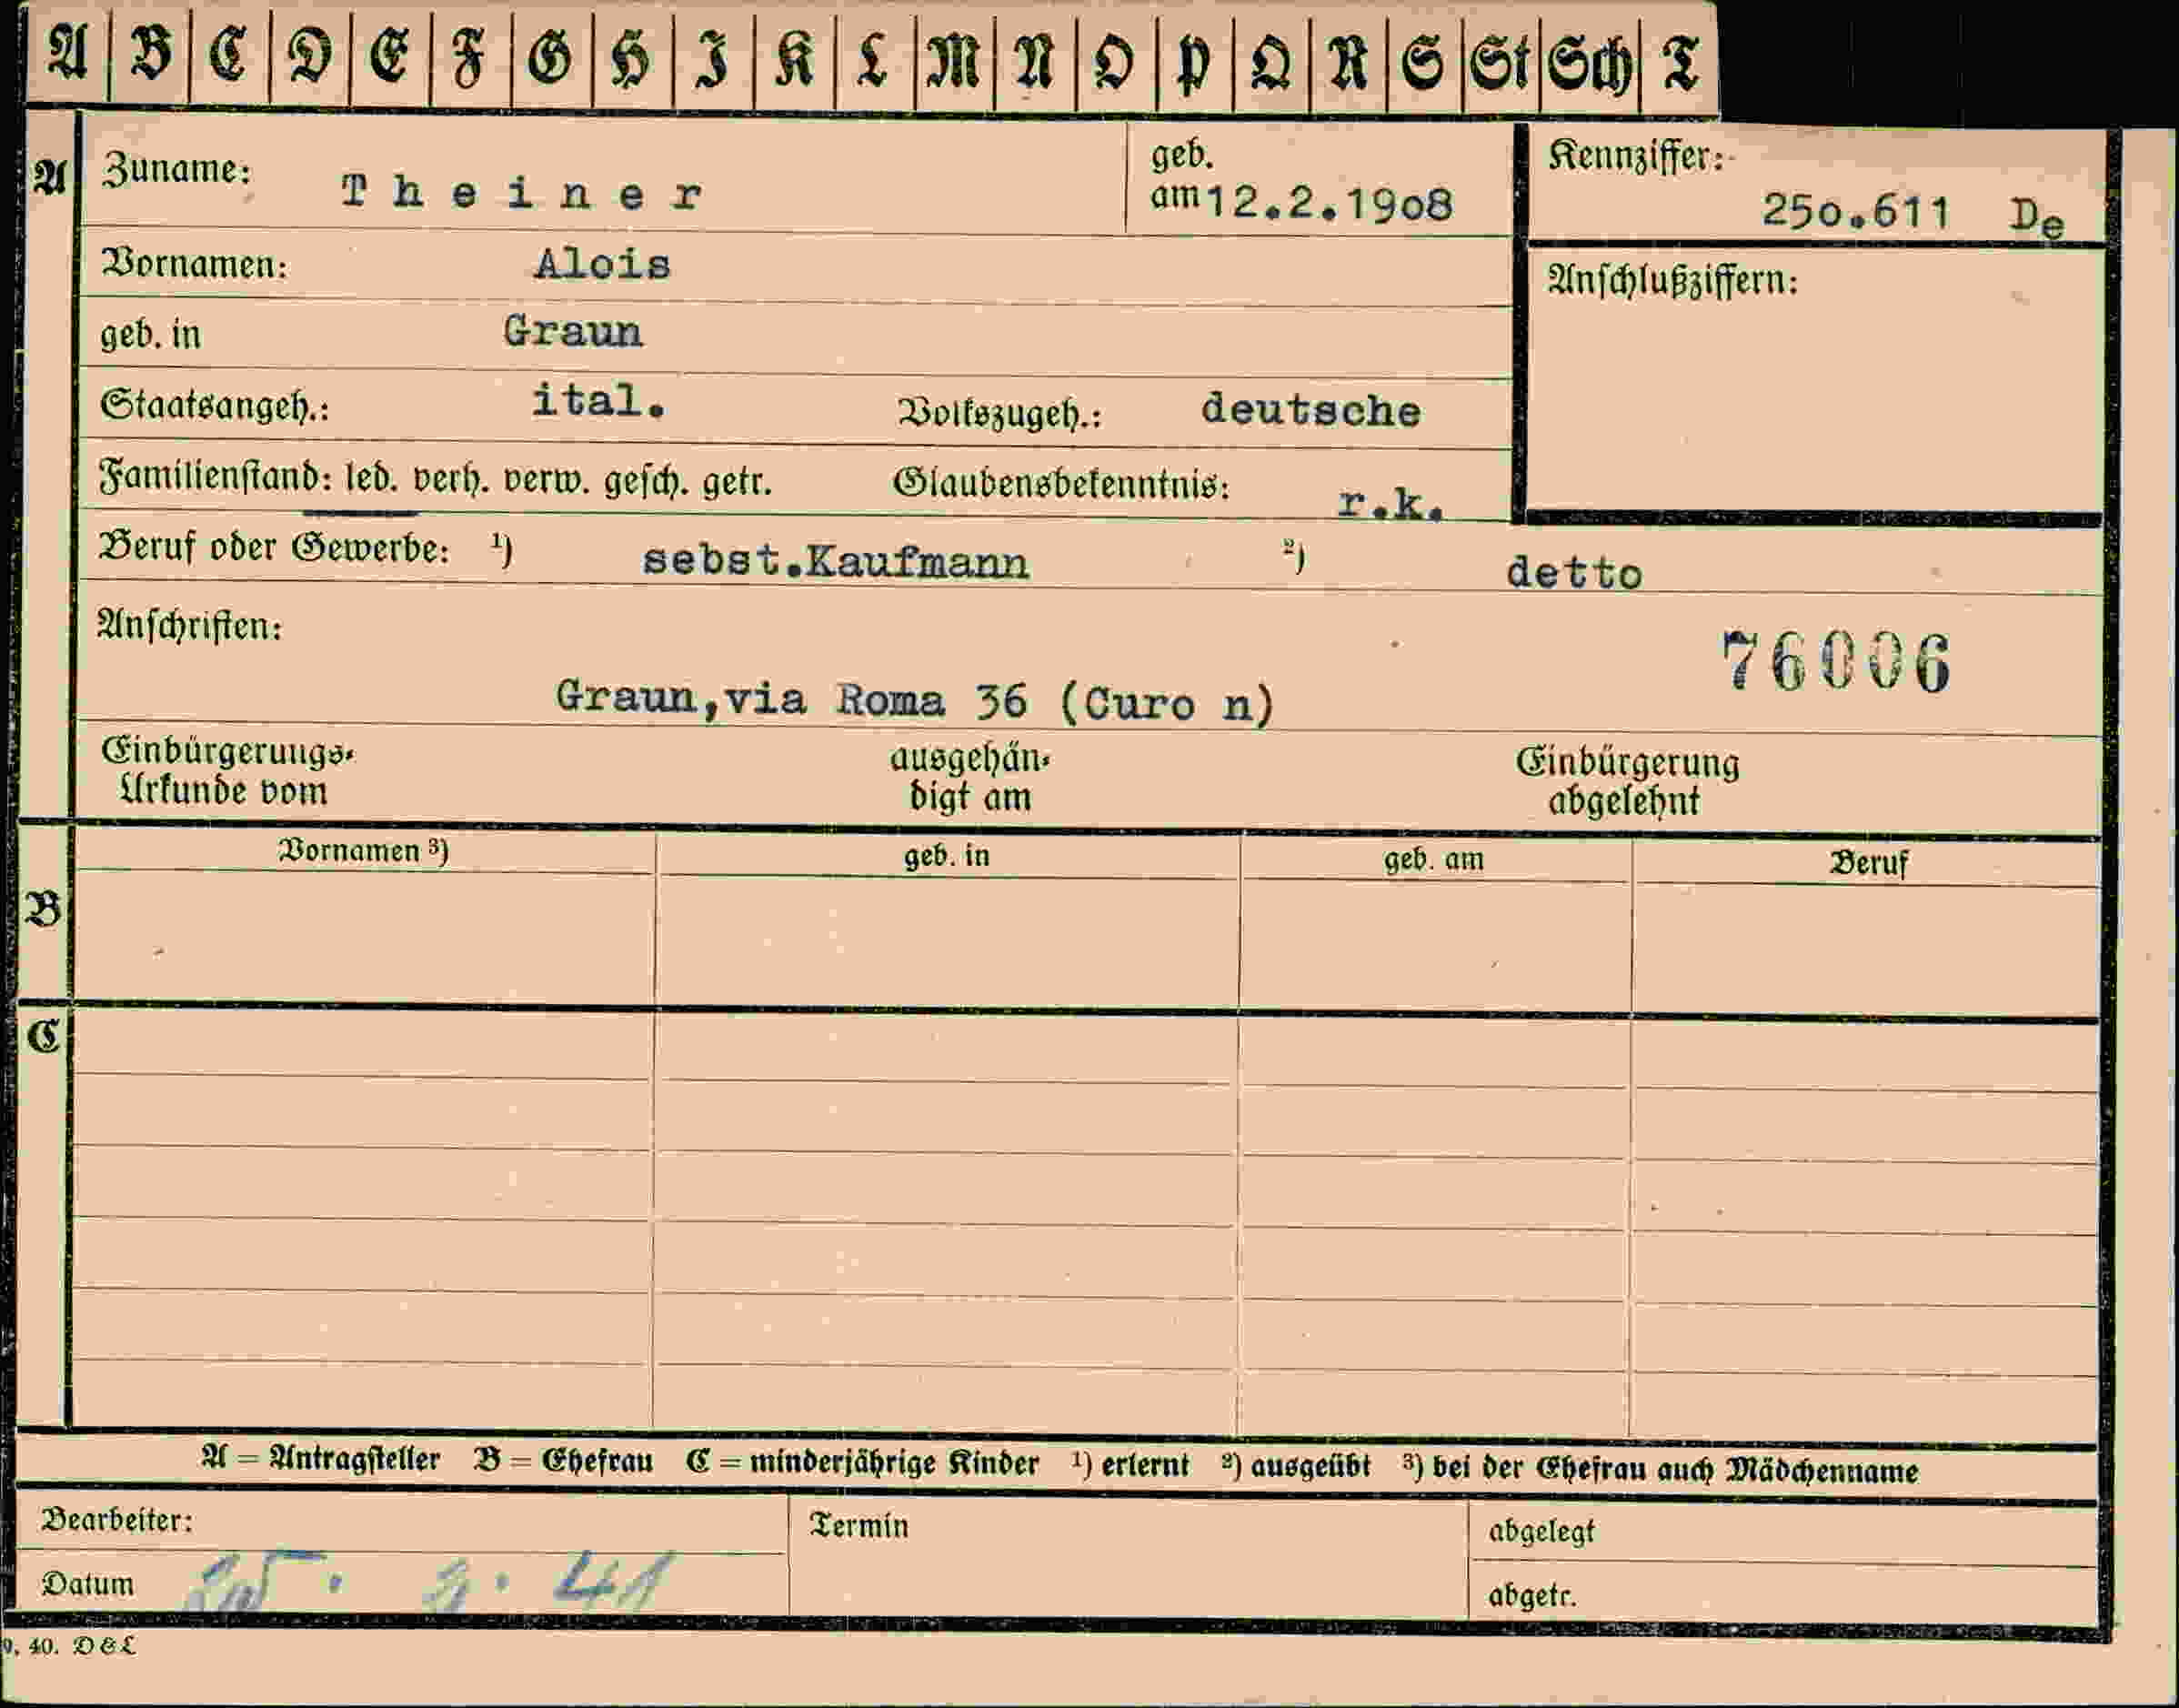 A B C D E F G H I K L M N O P Q R S St Sch T
A
Zuname: Theiner
geb. am 12.2.1908
Kennziffer: 250.611 De
Vornamen: Alois
Anschlußziffern:
geb. in Graun
Staatsangeh.: ital. Volkszugeh.: deutsche
Familienstand: led. verh. verw. gesch. getr. Glaubensbekenntnis: r.k.
Beruf oder Gewerbe: ¹) sebst.Kaufmann ²) detto
Anschriften:
76006
Graun,via Roma 36 (Curo n)
Einbürgerungs- ausgehän- Einbürgerung
Urkunde vom digt am abgelehnt
Vornamen ³) geb. in geb. am Beruf
B
C
A = Antragsteller B = Ehefrau C = minderjährige Kinder ¹) erlernt ²) ausgeübt ³) bei der Ehefrau auch Mädchenname
Bearbeiter: Termin abgelegt
Datum 41 abgetr.
9, 40. D & L